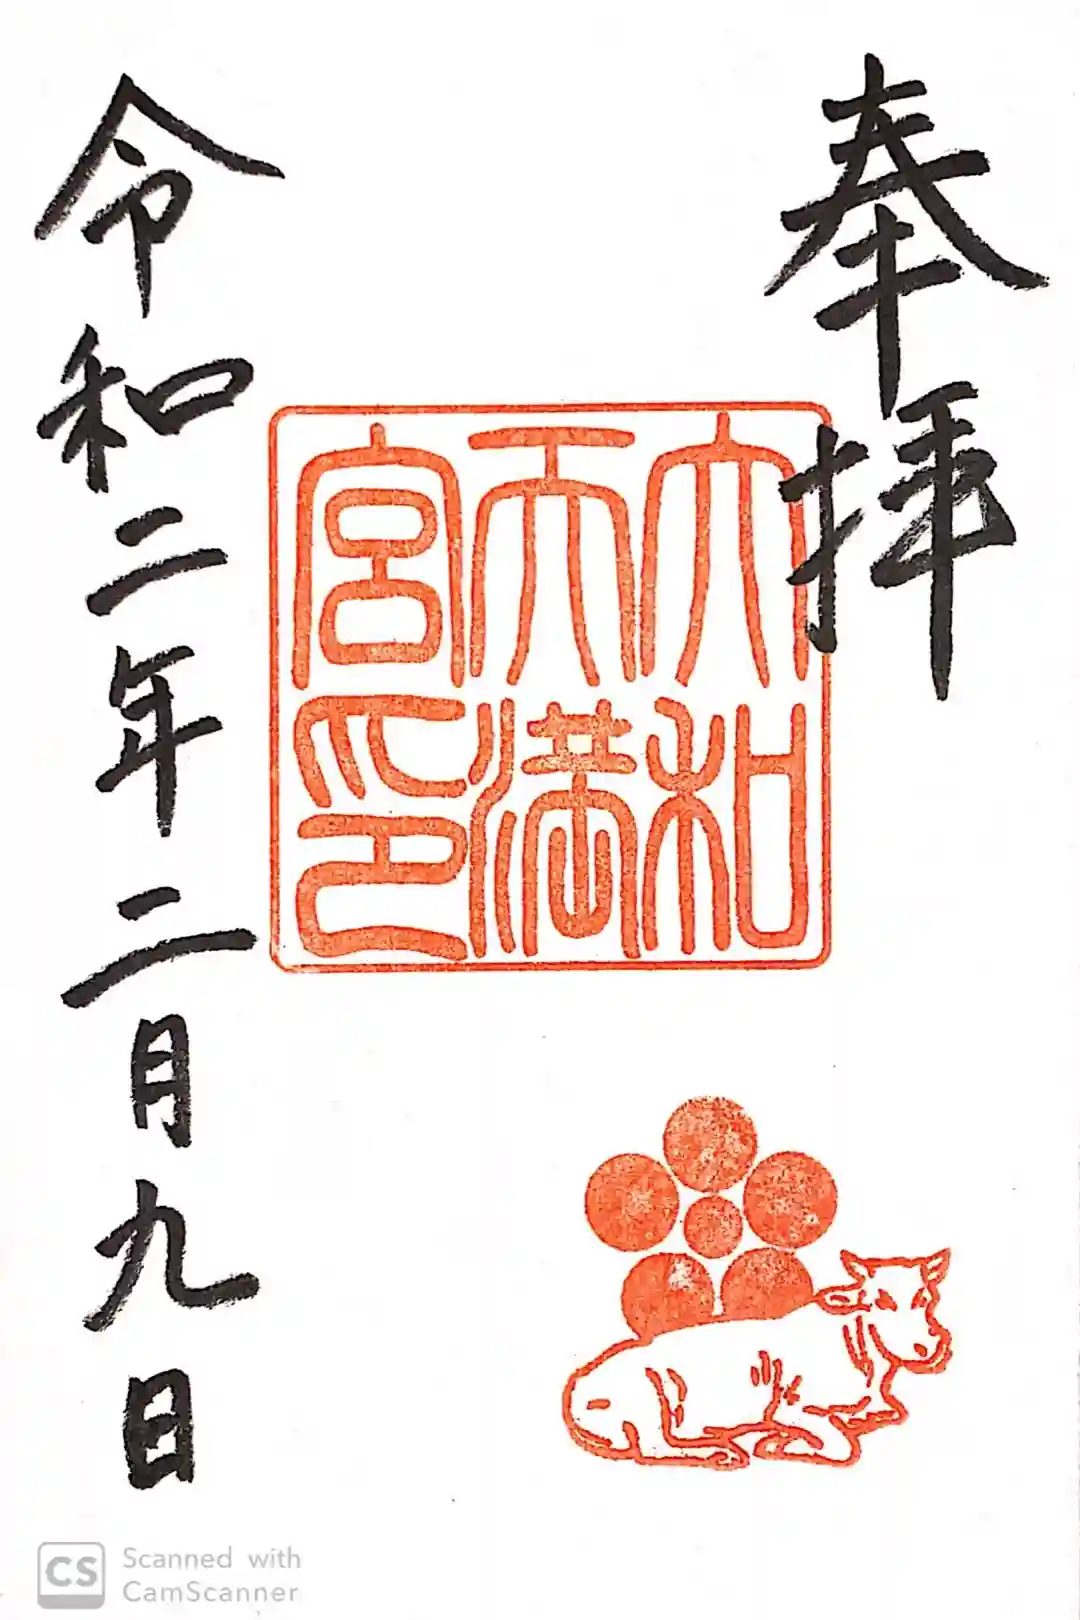 奉拝
大和
天満
宮印
令和二年二月九日
CS Scanned with
CamScanner